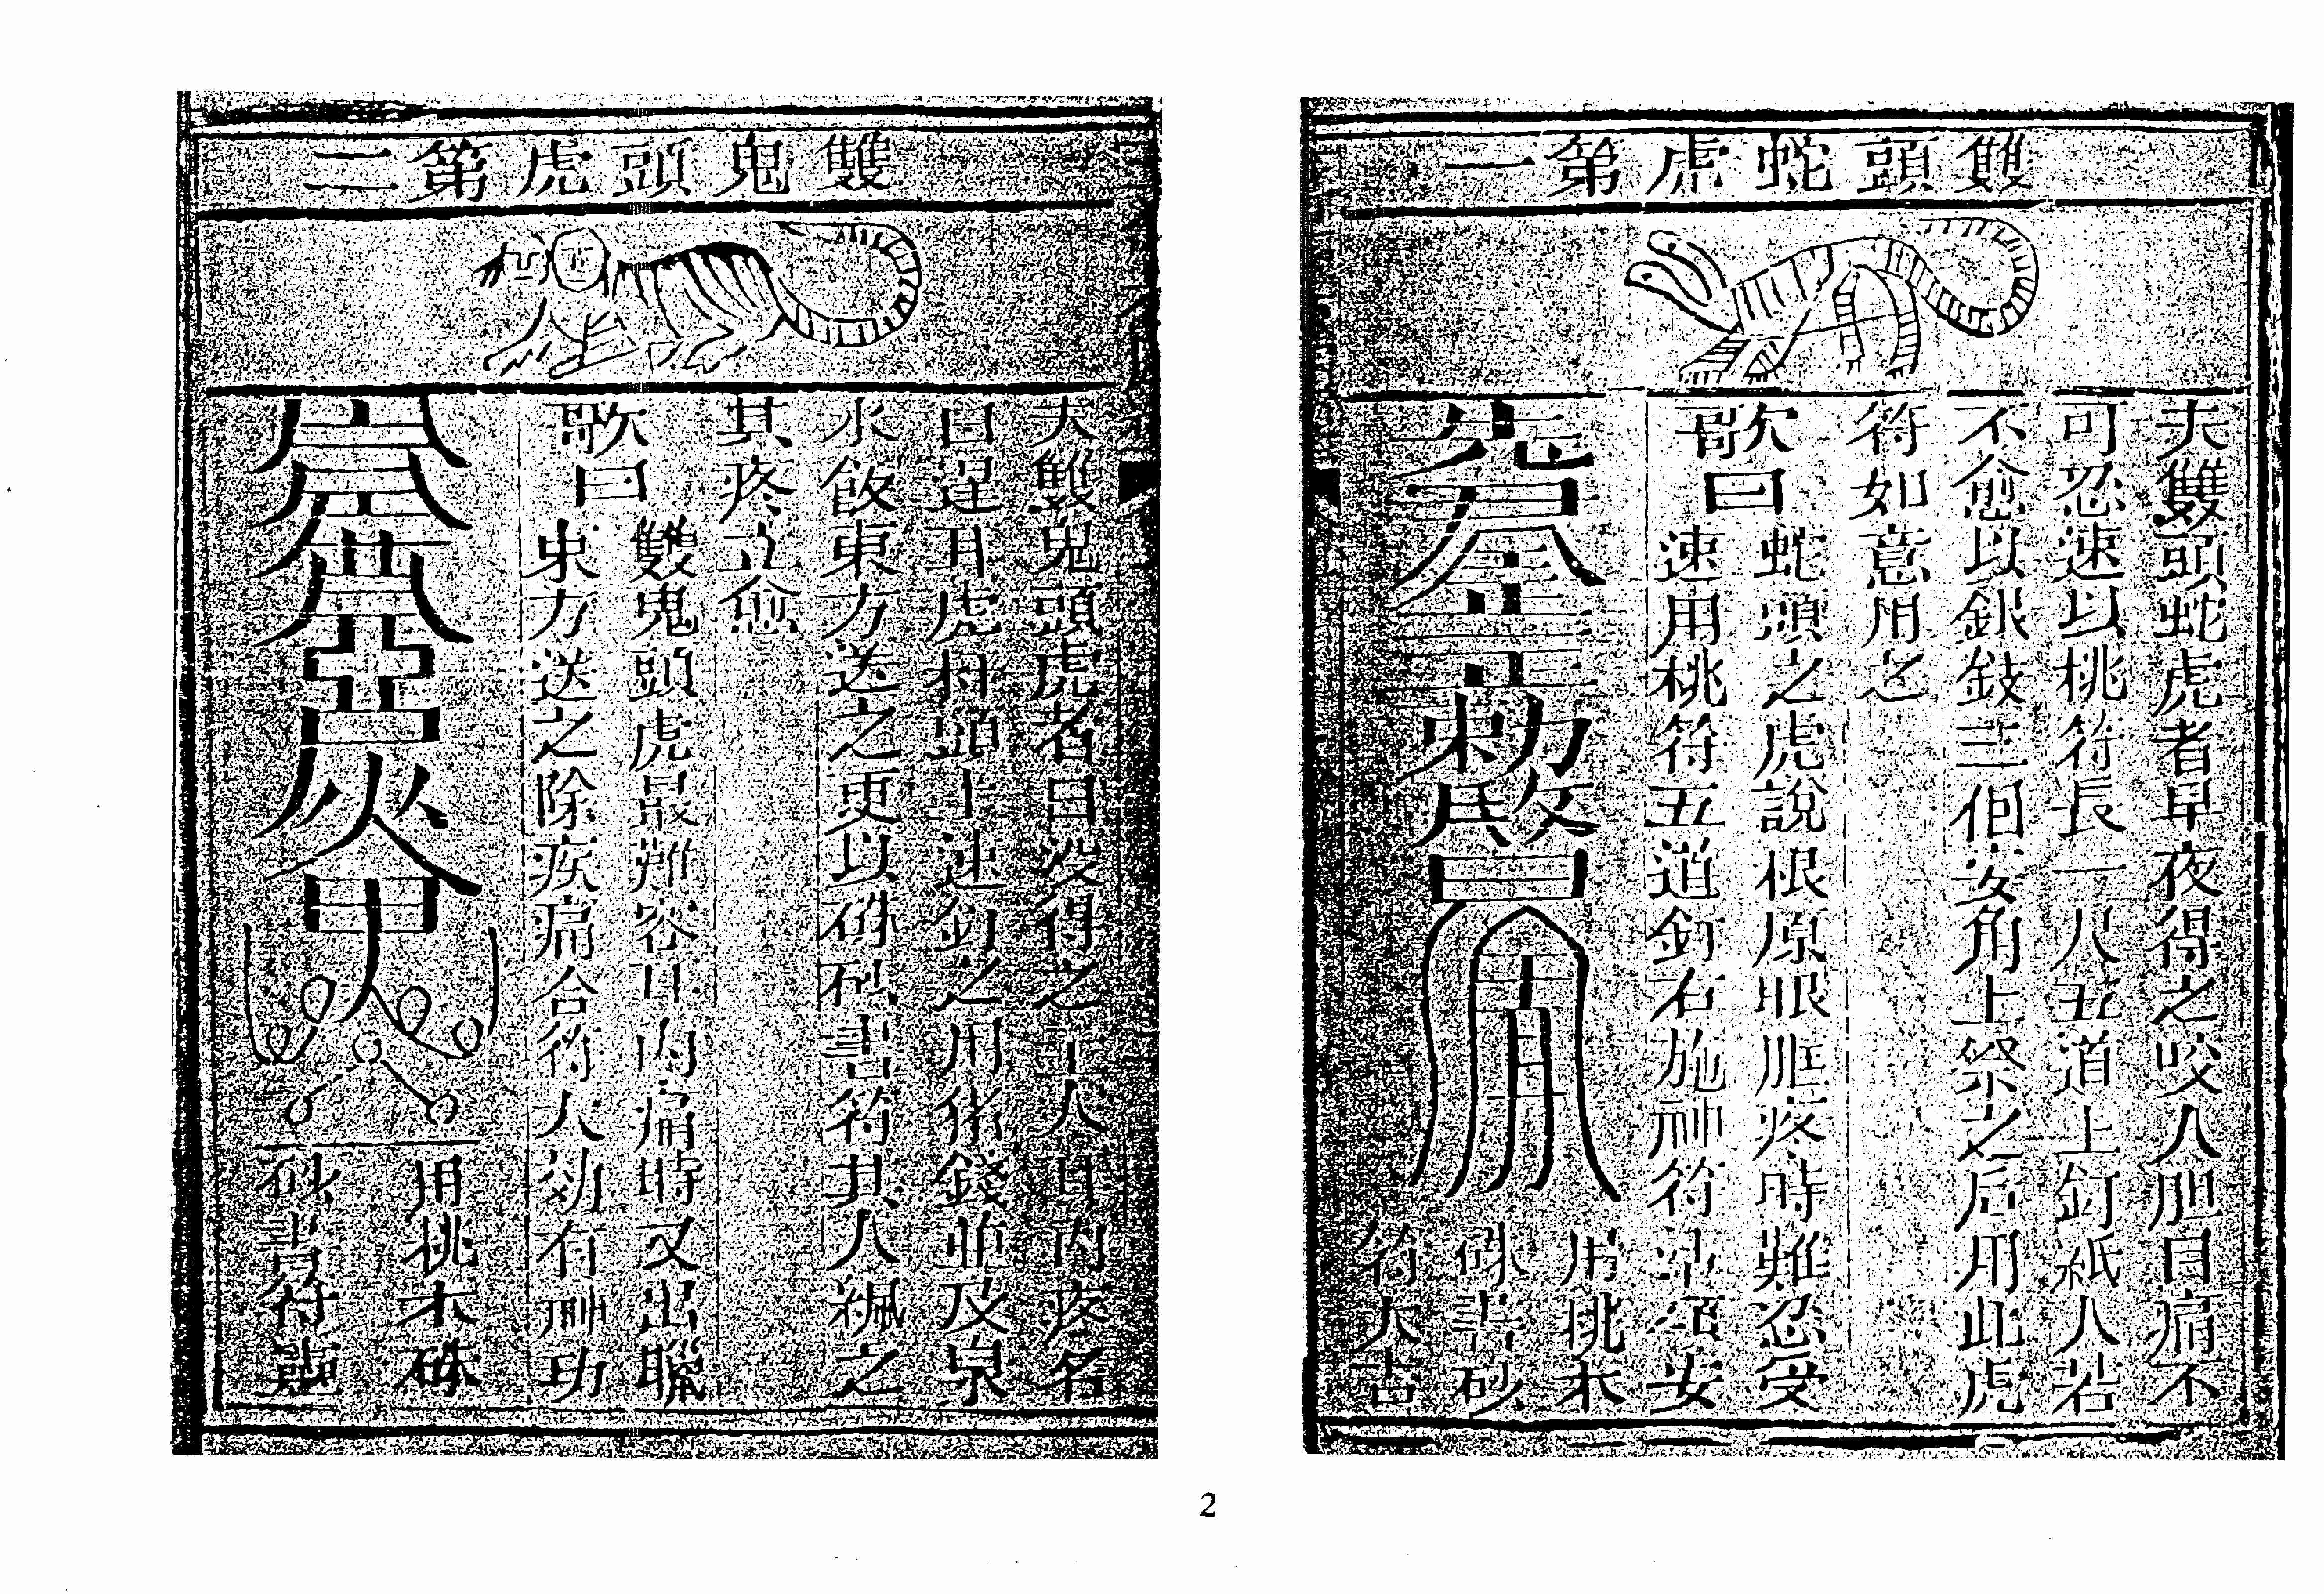 雙頭蛇虎第一
夫雙頭蛇虎者早夜得之咬人胆目痛不
可忍速以桃符長一尺五道上釘紙人若
不愈以銀釵三個安角上祭之后用此虎
符如意用之
歌曰
蛇頭之虎說根原眼眶疼時難忍受
速用桃符五道釘石施神符安
用桃木
砂書硃
符大吉
雙鬼頭虎第二
夫雙鬼頭虎者日沒得之主人耳內疼名
曰逞耳虎頭上速釘之用猪錢並及泉
水飲東方送之更以硃砂書符其人佩之
其疼立愈
歌曰
雙鬼頭虎最難容耳內痛時又出膿
東方送之除疾痛合符人効有神功
用桃木硃
砂書符
2